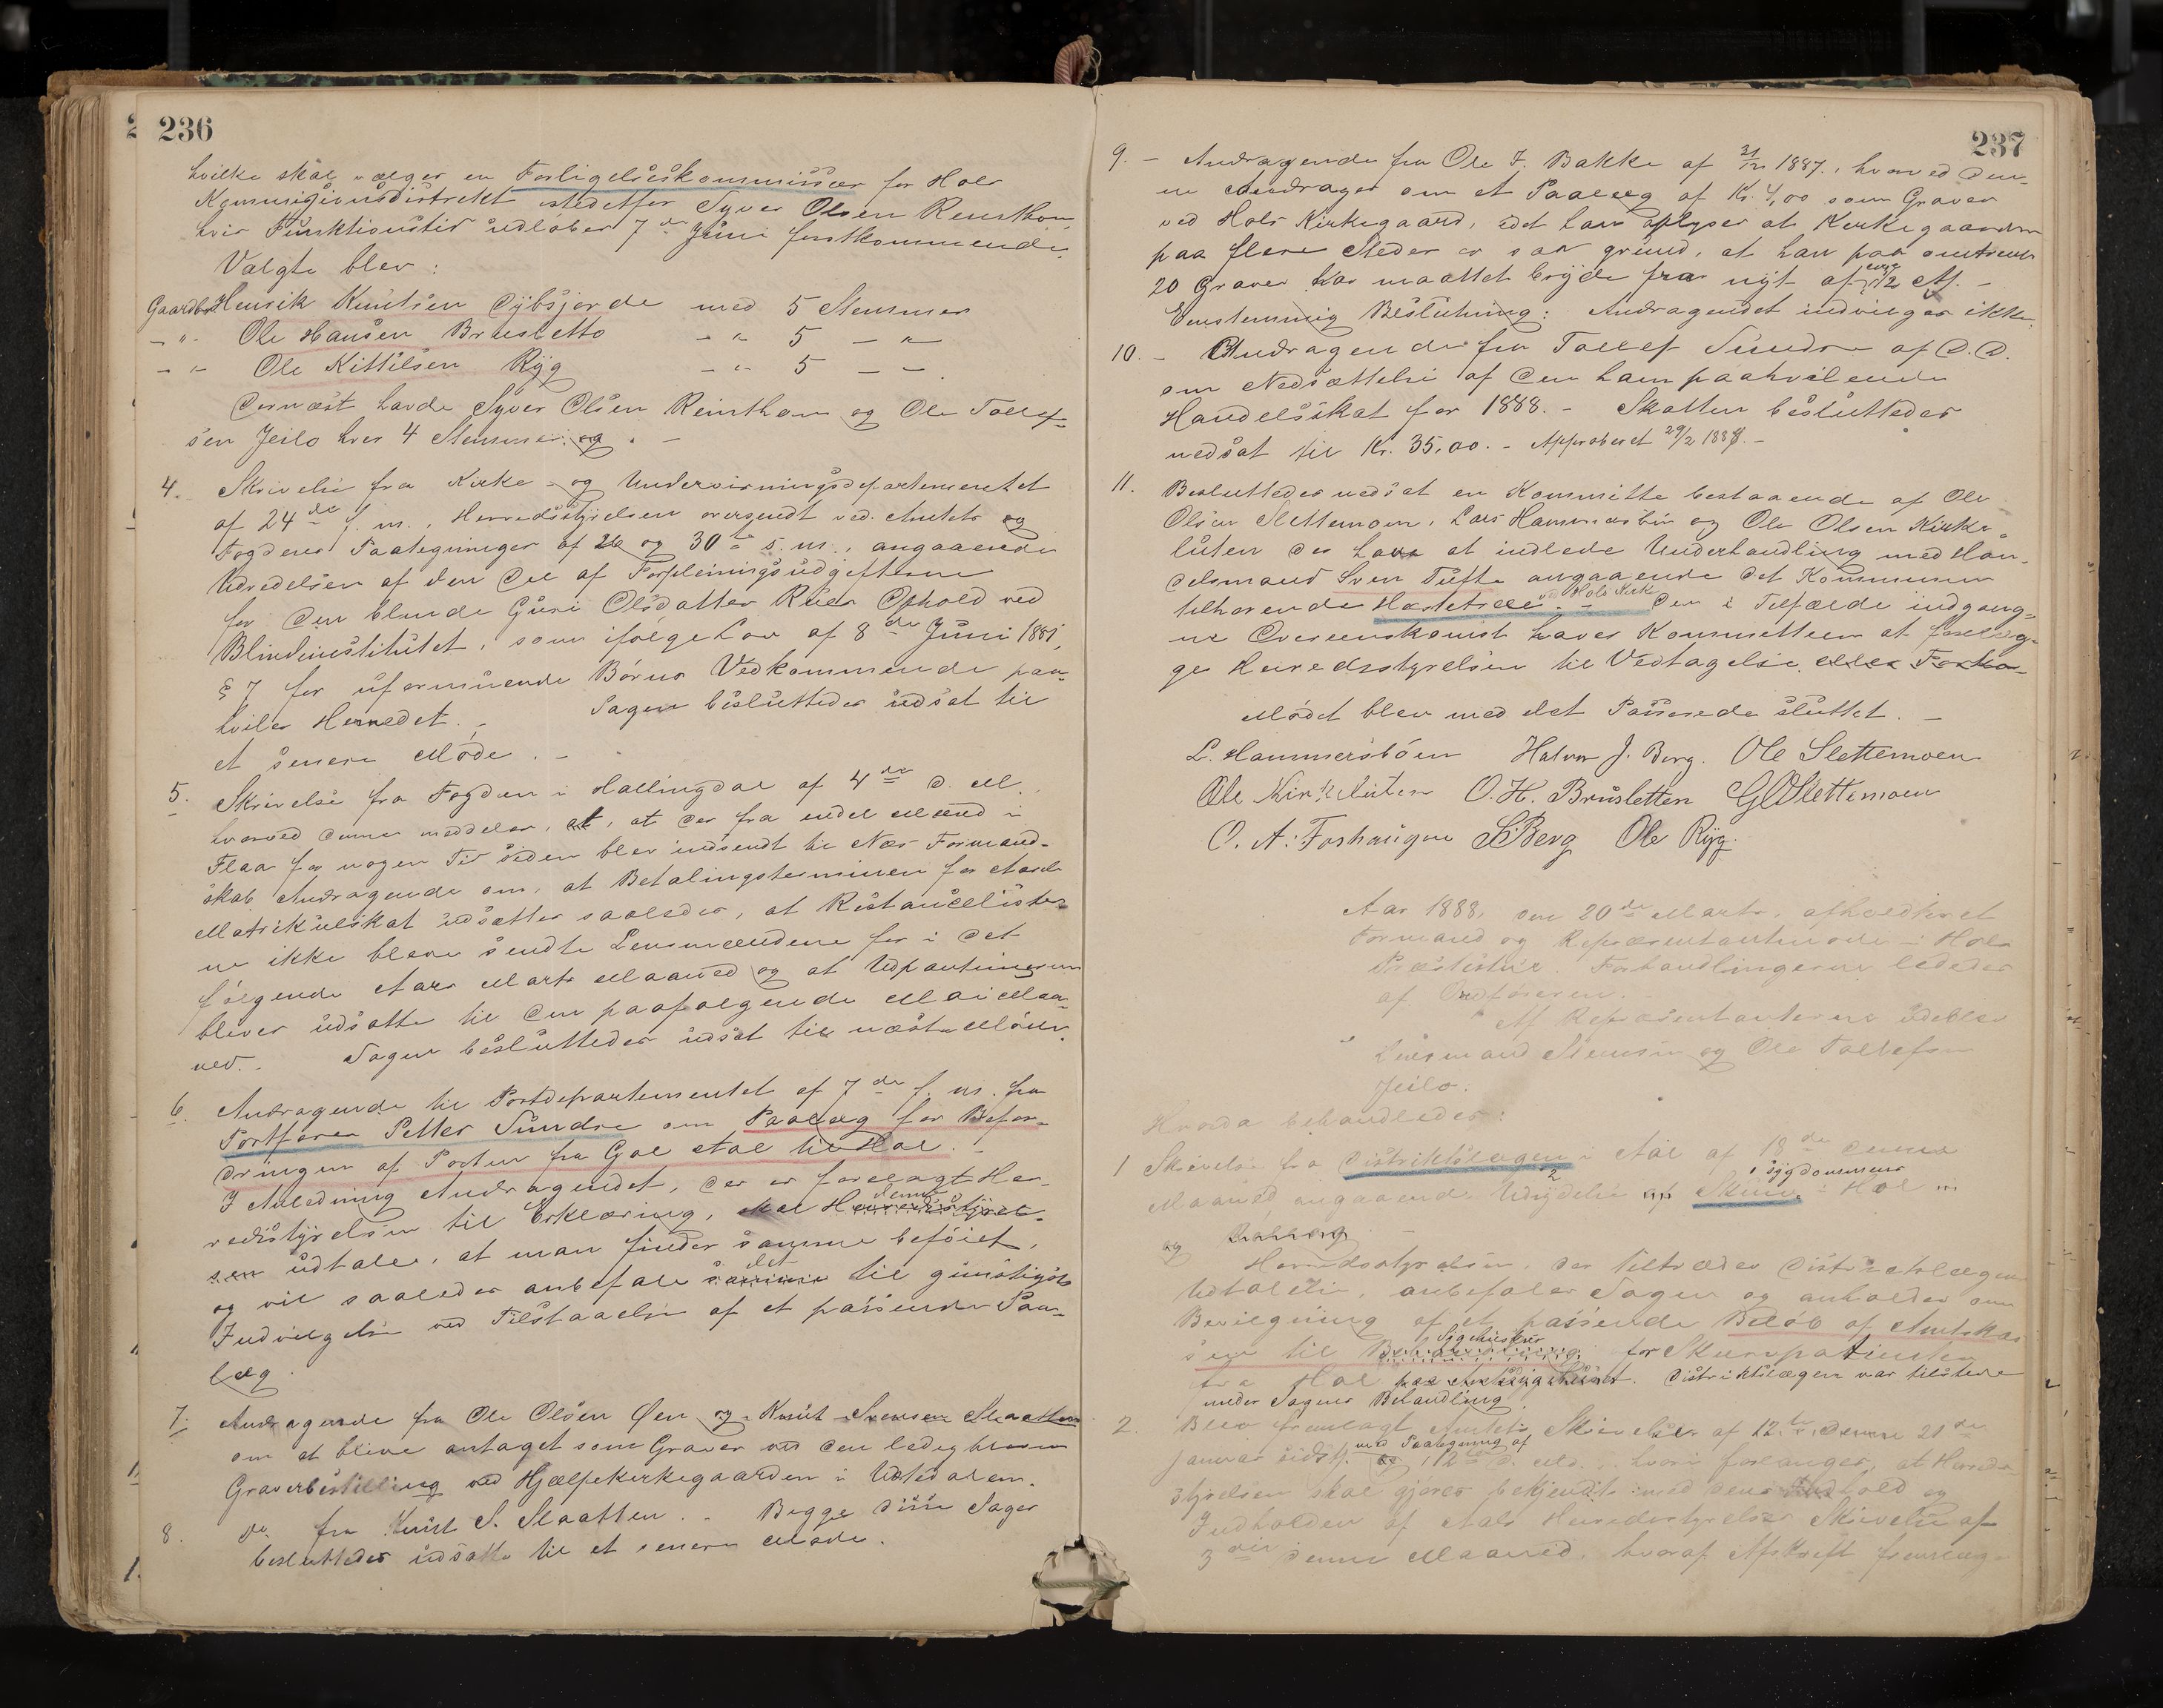 236
hvilke skal vælges en Forligelseskommissær for Hols
Kommissionsdistrikt istedetfor Syver Olsen Reinsthon,
hvis Funktionstid udløber 7de Juni førstkommende.
Valgte blev:
Gaardbr. Henrik Knutsen Dybsjorde med 5 Stemmer
-"- Ole Hansen Brusletto -"- 5 -"-
-"- Ole Kittilsen Ryg -"- 5 -"-
Dernæst havde Syver Olsen Reinsthon og Ole Tollef-
sen Jeilo hver 4 Stemmer. og . -
4. Skrivelse fra Kirke- og Undervisningsdepartementet
af 24de f. m., Herredsstyrelsen oversendt ved Amtets og
Fogdens Paategninger af 26 og 30te s. m., angaaende
Udredelsen af den Del af Forpleiningsudgifterne
for den blinde Guri Olsdatter Ruds Ophold ved
Blindeinstitutet, som ifølge Lov af 8de Juni 1881,
§ 7 for uformuende Børns Vedkommende paa-
hviler Herredet. - Sagen besluttedes udsat til
et senere Møde. -
5. Skrivelse fra Fogden i Hallingdal af 4de d. M.
hvorved denne meddeler, at, at der fra endel Mænd i
Flaa for nogen Tid siden blev indsendt til Næs Formand-
skab Andragende om, at Betalingsterminen for
Matrikulskat udsættes saaledes, at Restancelister-
ne ikke bleve sendte Lensmændene før i det
følgende Aars Marts Maaned og at Udpantningerne
bliver udsatte til den paafølgende Mai Maa-
ned. - Sagen besluttedes udsat til næste Møde.
6. Andragende til Postdepartementet af 7de f. m. fra
Postfører Petter Sundre om Paalæg for Befor-
dringen af Posten fra Gol Aal til Hol. -
I Anledning Andragendet, der er forelagt Her-
redsstyrelsen til Erklæring, skal Herredsstyrel- denne
sen udtale, at man finder samme beføiet,
og vil saaledes anbefale samme det til gunstigste
Indvilgelse ved Tilstaaelse af et passende Paa-
læg.
7. Andragende fra Ole Olsen Øen og Knut Svensen Slaatten
om at blive antaget som Graver ved den ledigblevne
Graverbestilling ved Hjælpekirkegaarden i Ustedalen.
8. do fra Knut S. Slaatten. - Begge disse Sager
besluttedes udsatte til et senere Møde.
237
9. - Andragende fra Ole J. Bakke af 31/12 1887, hvorved den-
ne andrager om et Paalæg af Kr. 4,00 som Graver
ved Hols Kirkegaard, idet han oplyser at Kirkegaarden
paa flere Steder er saa grund, at han paa omtrent
20 Graver har maattet bryde fra nyt af 1/2 M. -
Enstemmig Beslutning: Andragendet indvilges ikke.
10. - Andragende fra Tollef Sundre af D.D.
om Nedsættelse af den ham paahvilende
Handelsskat for 1888. - Skatten besluttedes
nedsat til Kr. 35,00. - Approberet 29/2 1888. -
11. Besluttedes nedsat en Kommitte bestaaende af Ole
Olsen Slettemoen, Lars Hammersbøn og Ole Olsen Kirke-
luten der have at indlede Underhandling med Han-
delsmand Sven Tufte angaaende det Kommunen
tilhørende - Hols Kirke Den i Tilfælde indgang-
ne Overenskomst haver Kommitteen at forelæg-
ge Herredsstyrelsen til Vedtagelse eller Forka-
Mødet blev med det Passerede sluttet. -
L. Hammersbøen Halvor J. Berg. Ole Slettemoen
Ole Kirkeluten O. H. Brusletten G O Slettemoen
O. A. Foshaugen S Berg Ole Ryg.
Aar 1888, den 20de Marts, afholdtes et
Formand og Repræsentantmøde i Hols
Præstestue. Forhandlingerne lededes
af Ordføreren.
Af Repræsentanterne udeblev
Lensmand Stensen og Ole Tollefsen
Jeilo.
Hvorda behandledes:
1 Skrivelse fra Distriktslægen i Aal af 18de denne
Maaned angaaende Udrydelse af Skurv- sygdommene i Hol
og
Herredsstyrelsen, der tiltræder Distriktslægens
Udtalelse, anbefaler Sagen og anholder om
Bevilgning af et passende Beløb af Amtskas-
sen til Sygehuskur for Skurvpatienter
fra Hol Distriktslægen var tilstede
under Sagens Behandling.
2. Blev fremlagt Amtets Skrivelse af 12te 21de
Januar sidstl. med Paategning af 12te d. Md., hvori forlanges, at Herreds-
styrelsen skal gjøres bekjendt med dens Indhold og
Indholdet af Aals Herredsstyrelses Skrivelse af
3die denne Maaned, hvoraf Afskrift fremlæg-